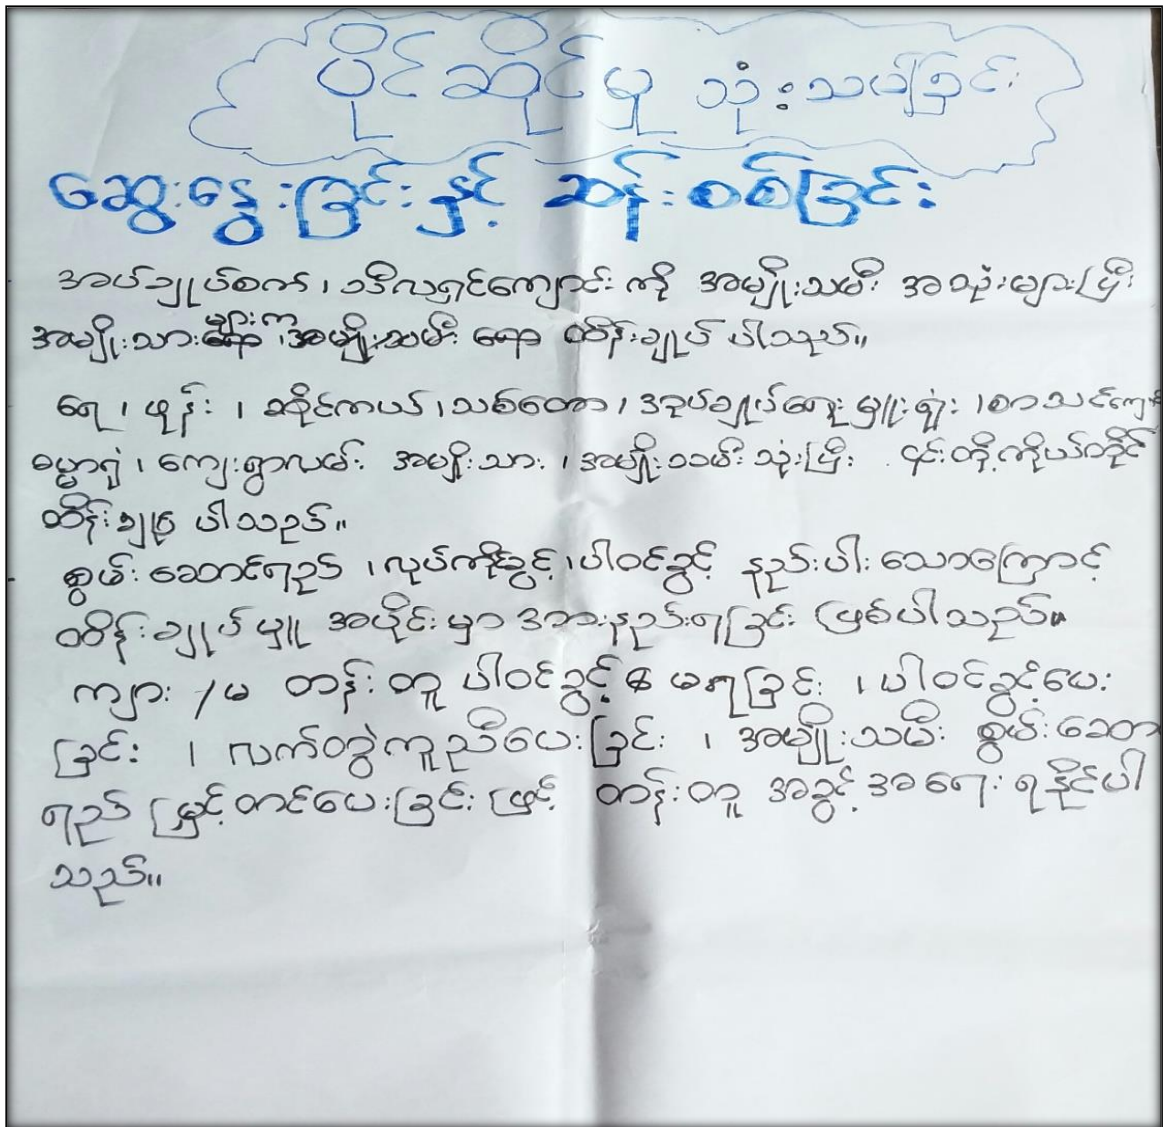 ပိုင်ဆိုင်မှု သုံးသပ်ခြင်း
ဆွေးနွေးခြင်းနှင့် ဆန်းစစ်ခြင်း
အပ်ချုပ်စက်၊ သီလရှင်ကျောင်း ကို အမျိုးသမီး အသုံးများပြီး
အမျိုးသားများက ရော ၊အမျိုးသမီး ရော ထိန်းချုပ် ပါသည်။
ရေ ၊ ဖုန်း ၊ ဆိုင်ကယ် ၊သစ်တော ၊ အုပ်ချုပ်ရေးမှူးရုံး ၊စာသင်ကျောင်း
ဓမ္မာရုံ ၊ ကျေးရွာလမ်း အမျိုးသား ၊ အမျိုးသမီး သုံးပြီး ၎င်းတို့ကိုယ်တိုင်
ထိန်းချုပ် ပါသည်။
စွမ်းဆောင်ရည် ၊လုပ်ကိုင်ခွင့် ၊ပါဝင်ခွင့် နည်းပါးသောကြောင့်
ထိန်းချုပ်မှူ အပိုင်းမှာ အားနည်းရခြင်း ဖြစ်ပါသည်။
ကျား /မ တန်းတူ ပါဝင်ခွင့် မရခြင်း ၊ ပါဝင်ခွင့်ပေး
ခြင်း ၊ လက်တွဲကူညီပေးခြင်း ၊ အမျိုးသမီး စွမ်းဆောင်
ရည် မြှင့်တင်ပေးခြင်း ဖြင့် တန်းတူ အခွင့်အရေး ရနိုင်ပါ
သည်။